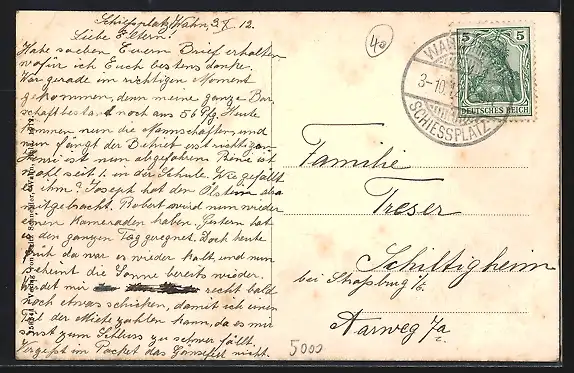 Schiessplatz Wahn, 3.X.12.
Liebe Eltern!
Habe soeben Euern Brief erhalten
wofür ich Euch bestens danke.
War gerade im richtigen Moment
gekommen, denn meine ganze Bar-
schaft bestand noch aus 56 Pfg. Heute
kommen nun die Mannschaften, und
nun fängt der Betrieb erst richtig an.
ist nun abgefahren Renie ist
wohl seit 1. in der Schule. Wie gefällt
es ihm? Joseph hat den also
mitgebracht. Robert wird nun wieder
einen Kameraden haben. Gestern hat
es den ganzen Tag geregnet. Doch heute
früh da war es wieder kalt und nun
scheint die Sonne bereits wieder.
Werdet mir recht bald
noch etwas schicken, damit ich einen
Teil der Miete zahlen kann, da es mir
sonst zum Schluss zu schwer fällt.
Vergesst im Packet das Gänsefett nicht.
40
5 5
DEUTSCHES REICH
WAHN
3-10.12
SCHIESSPLATZ
Familie
Treser
Schiltigheim
bei Strassburg i/E
Aarweg 7a
5000